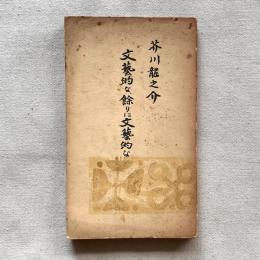 芥川龍之介
文藝的な、餘りに文藝的な